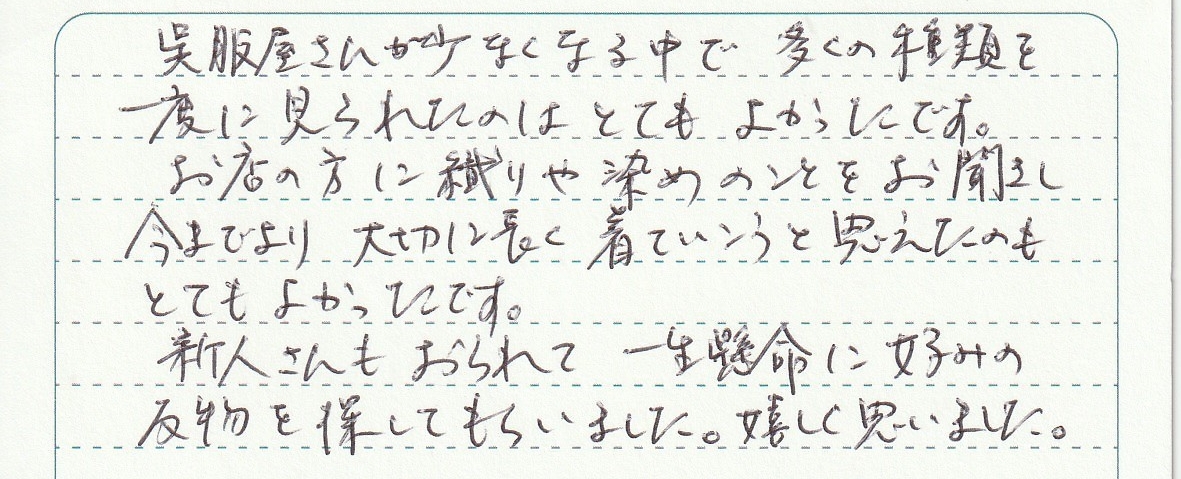 呉服屋さんが少なくなる中で 多くの種類を
一度に見られたのは とても よかったです。
お店の方に織りや染めのことをお聞きし
今までより 大切に長く着ていこうと思えたのも
とてもよかったです。
新人さんも おられて 一生懸命に好みの
反物を探してもらいました。嬉しく思いました。